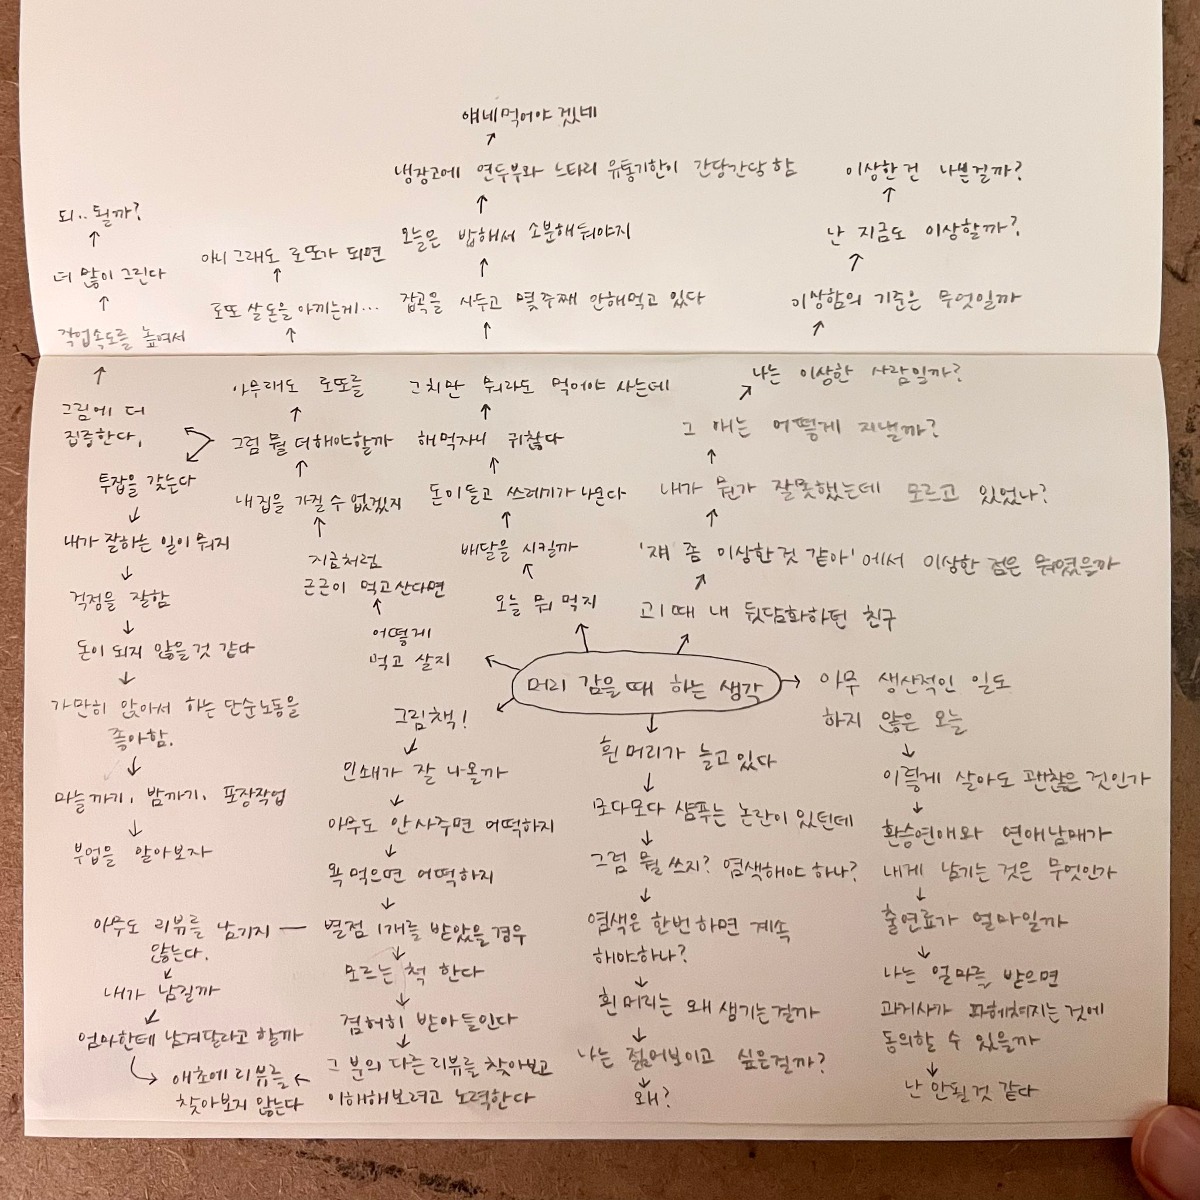 얘네먹어야겠네
냉장고에 연두부와 느타리 유통기한이 간당간당함
이상한건 나쁜걸까?
되..될까?
오늘은 밥해서 소분해둬야지
난 지금도 이상할까?
아니 그래도 로또가 되면
더 많이 그린다
로또 살돈을 아끼는게...
잡곡을 사두고 몇주째 안해먹고 있다
이상함의 기준은 무엇일까
작업속도를 높여서
나는 이상한 사람일까?
아무래도 로또를
그치만 뭐라도 먹어야 사는데
그림에 더
집중한다.
그럼 뭘 더해야할까
해먹자니 귀찮다
그 애는 어떻게 지낼까?
투잡을 갖는다
내집을 가질 수 없겠지
돈이들고 쓰레기가 나온다
내가 뭔가 잘못했는데 모르고 있었나?
내가 잘하는 일이 뭐지
지금처럼
근근이 먹고산다면
배달을 시킬까
'쟤 좀 이상한것 같아'에서 이상한 점은 뭐였을까
걱정을 잘함
오늘 뭐 먹지
고1때 내 뒷담화하던 친구
어떻게
먹고 살지
돈이 되지 않을것 같다
머리 감을때 하는 생각
아무 생산적인 일도
하지 않은 오늘
가만히 앉아서 하는 단순노동을
좋아함.
그림책!
흰머리가 늘고있다
인쇄가 잘 나올까
이렇게 살아도 괜찮은 것인가
마늘까기, 밤까기, 포장작업
아무도 안사주면 어떡하지
모다모다 샴푸는 논란이 있던데
환승연애와 연애남매가
내게 남기는 것은 무엇인가
부업을 알아보자
욕먹으면 어떡하지
그럼 뭘 쓰지? 염색해야 하나?
아무도 리뷰를 남기지
않는다.
별점 1개를 받았을 경우
염색은 한번하면 계속
해야하나?
출연료가 얼마일까
내가 남길까
모르는 척 한다
흰머리는 왜 생기는걸까
나는 얼마를 받으면
과거사가 파헤쳐지는것에
동의할 수 있을까
엄마한테 남겨달라고 할까
겸허히 받아들인다
나는 젊어보이고 싶은걸까?
왜?
애초에 리뷰를
찾아보지 않는다
그 분의 다른 리뷰를 찾아보고
이해해보려고 노력한다
난 안될것 같다